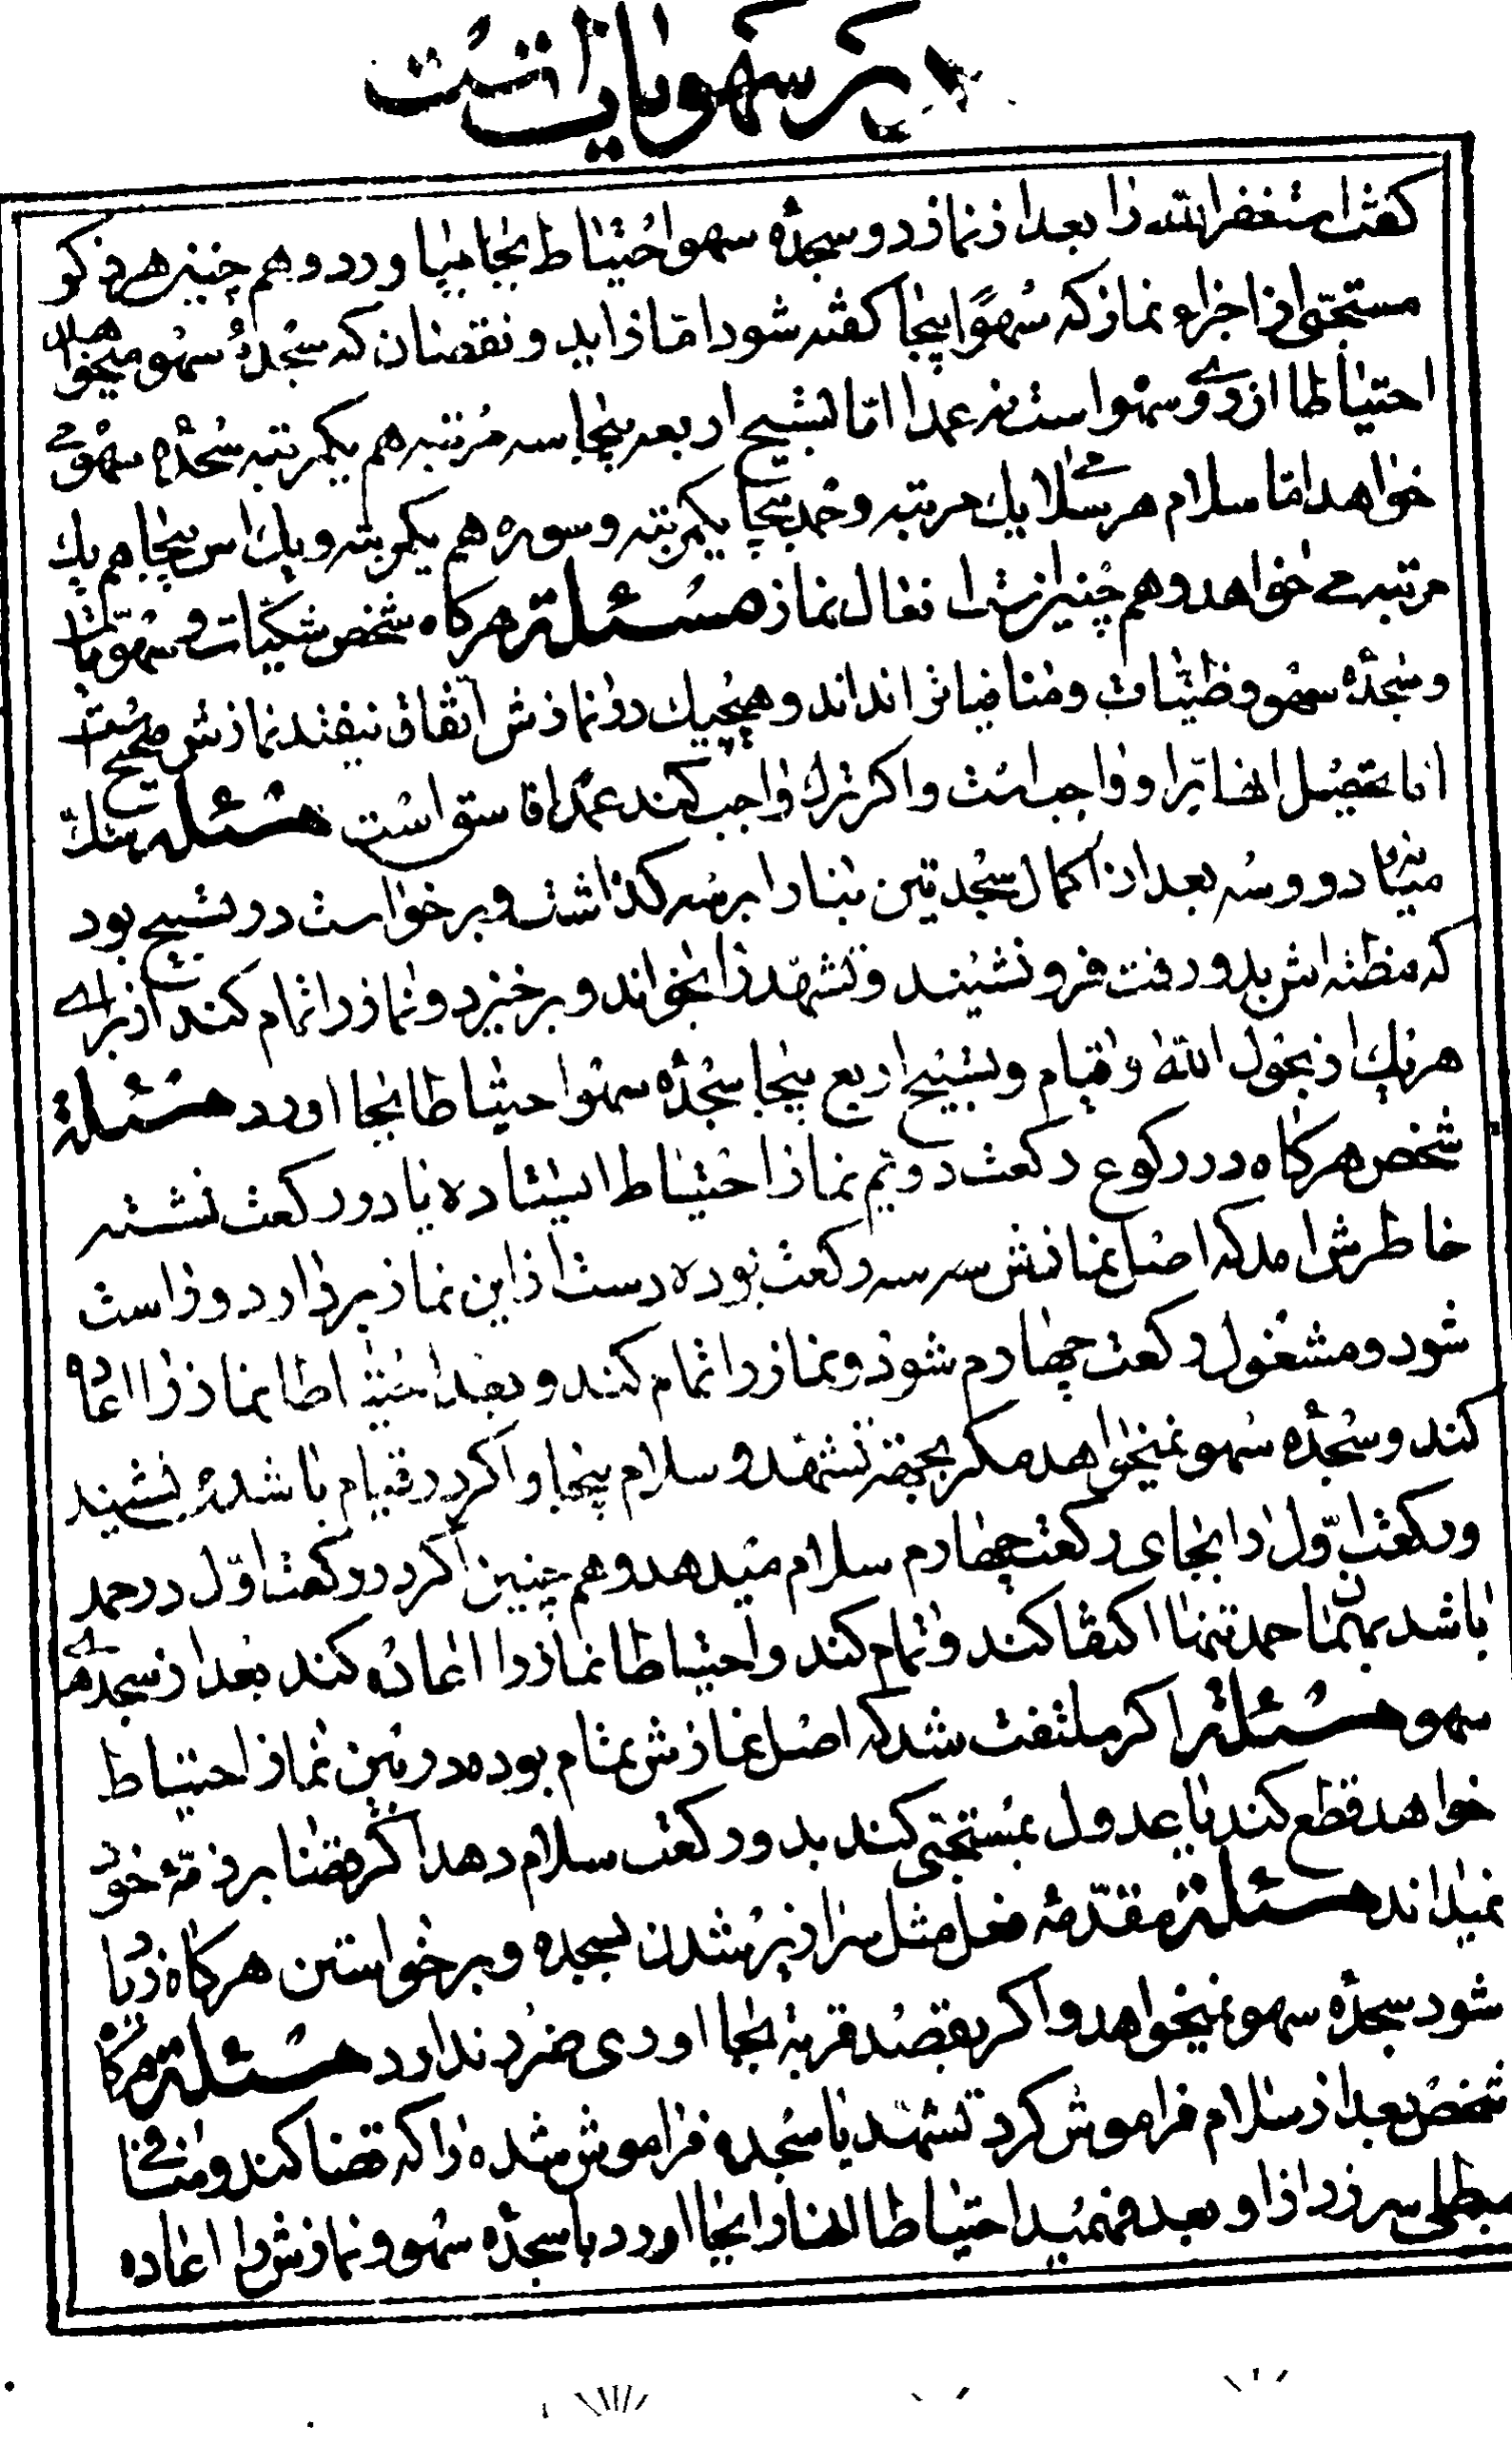 در سهویات است
گفتن استغفر الله را بعد از نماز دو سجده سهو احتیاط بجا بیاورد و هم چنین هر ذکر
مستحبی از اجزاء نماز که سهوًا بیجا گفته شود اما زاید و نقصان که سجدهٔ سهو میخواهد
احتیاطا از روی سهو است نه عمدا اما تسبیح اربعه بیجا سه مرتبه هم یکمرتبه سجده سهو می
خواهد اما سلام هر سه سلام یک مرتبه و حمد بیجا یکمرتبه و سوره هم یکمرتبه و یک اس بیجا هم یک
مرتبه می خواهد و هم چنین است افعال نماز مسئلة هر گاه شخص شکیات و سهویات
و سجده سهو و ظنیات و منافیات را نداند و هیچیک در نمازش اتفاق نیفتد نمازش صحیح است
اما تحصیل اینها بر او واجب است و اگر ترک واجب کند عمدا فاسق است مسئله شک
میان دو و سه بعد از اکمال سجدتین بنا را بر سه گذاشت و برخواست در تسبیح بود
که مظنه اش بدو رفت فرو نشیند و تشهد را بخواند و برخیزد و نماز را تمام کند از برای
هر یک از بحول الله و قیام و تسبیح اربع بیجا سجده سهو احتیاطا بجا اورد مسئلة
شخص هر گاه در رکوع رکعت دویم نماز احتیاط ایستاده یا دو رکعت نشسته
خاطرش امد که اصل نمازش سه رکعت بوده دست از این نماز بردارد و راست
شود و مشغول رکعت چهارم شود و نماز را تمام کند و بعد احتیاطا نماز را اعاده
کند و سجده سهو نمیخواهد مگر بجهة تشهد و سلام بیجا و اگر در قیام باشد بنشیند
و رکعت اول را بجای رکعت چهارم سلام میدهد و هم چنین اگر در رکعت اول در حمد
باشد بهمان حمد تنها اکتفا کند و تمام کند و احتیاطا نماز را اعاده کند بعد از سجدهٔ
سهو مسئلة اگر ملتفت شد که اصل نمازش تمام بوده در بین نماز احتیاط
خواهد قطع کند یا عدول بمستحبی کند بدو رکعت سلام دهد اگر قضا بر ذمهٔ خود
نمیداند مسئلة مقدمهٔ فعل مثل سرازیر شدن بسجده و برخواستن هر گاه زیاد
شود سجده سهو نمیخواهد و اگر بقصد قربة بجا اوردی ضرر ندارد مسئلة هر گاه
شخص بعد از سلام فراموش کرد تشهد یا سجده فراموش شده را که قضا کند و منافی
مبطلی سر زد از او بعد فهمید احتیاطا انها را بجا اورد با سجده سهو و نمازش را اعاده